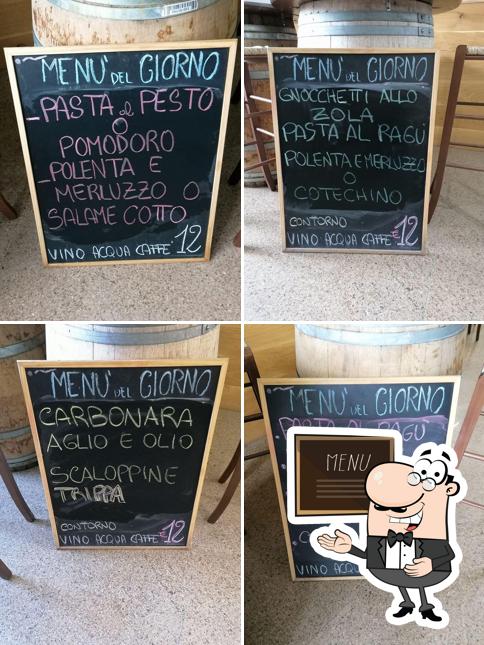 MENU' DEL GIORNO
-PASTA al PESTO
O
POMODORO
-POLENTA E
MERLUZZO O
SALAME COTTO
VINO ACQUA CAFFE' 12
MENU' DEL GIORNO
GNOCCHETTI ALLO
ZOLA
PASTA AL RAGÚ
POLENTA E MERLUZZO
O
COTECHINO
CONTORNO
VINO ACQUA CAFFE' €12
MENU' DEL GIORNO
CARBONARA
AGLIO E OLIO
SCALOPPINE
TRIPPA
CONTORNO
VINO ACQUA CAFFE' €12
MENU' DEL GIORNO
PASTA AL RAGU'
MENU
VINO ACQUA